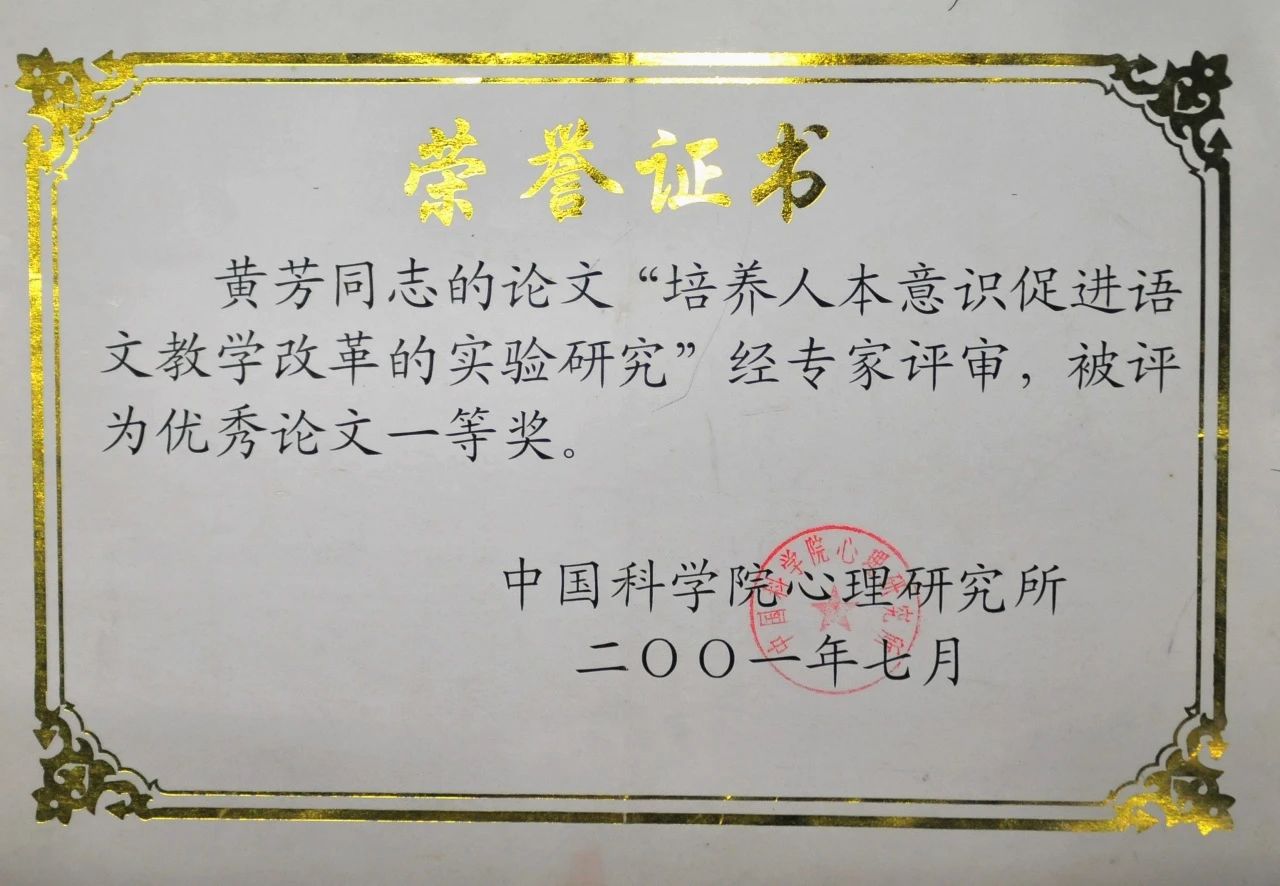 荣誉证书
黄芳同志的论文“培养人本意识促进语
文教学改革的实验研究”经专家评审，被评
为优秀论文一等奖。
中国科学院心理研究所
二〇〇一年七月
中国科学院心理研究所